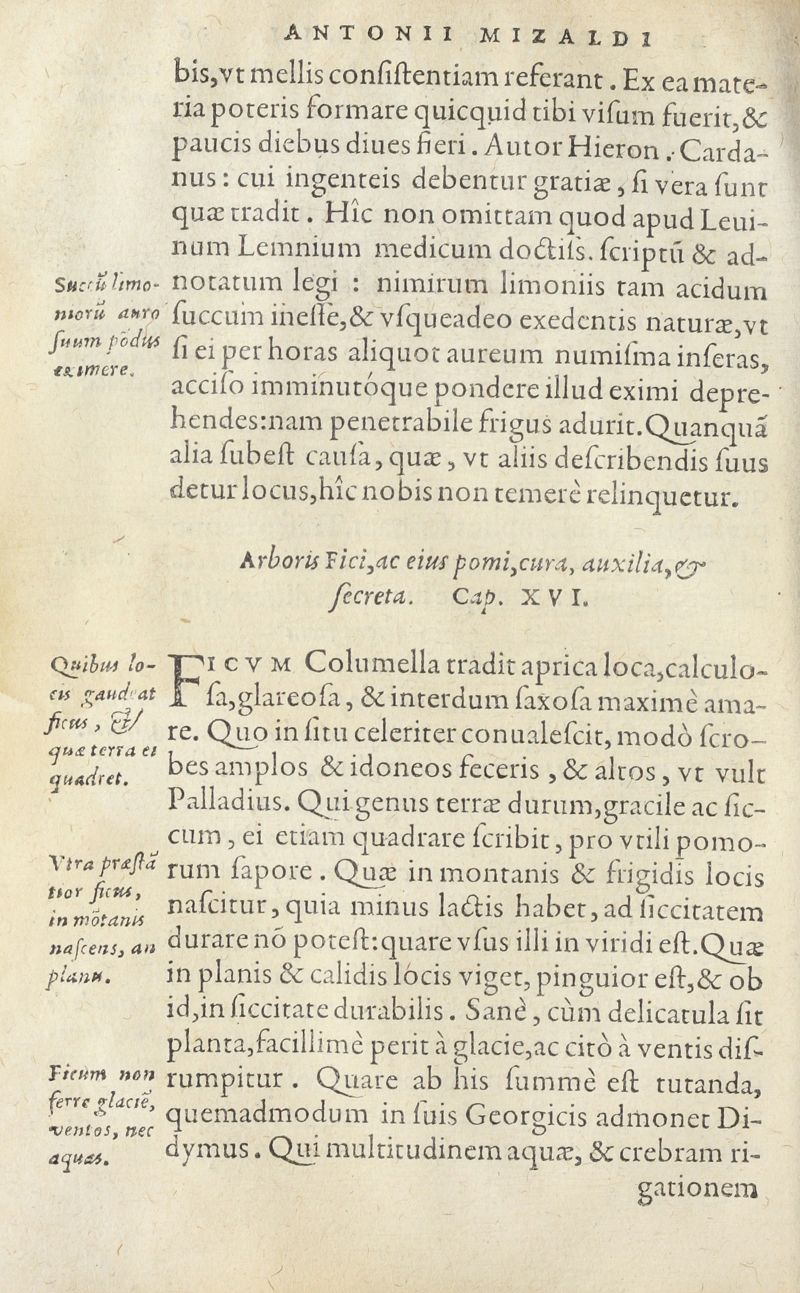 ANTONII MIZALDI
bis,vt mellis conſiſtentiam referant . Ex ea mate-
ria poteris formare quicquid tibi viſum fuerit,&
paucis diebus diues fieri . Autor Hieron . Carda-
nus : cui ingenteis debentur gratiæ , ſi vera ſunt
quæ tradit . Hîc non omittam quod apud Leui-
num Lemnium medicum doctiſs. ſcriptũ & ad-
notatum legi : nimirum limoniis tam acidum
ſuccum ineſſe,& vſqueadeo exedentis naturæ,vt
ſi ei per horas aliquot aureum numiſma inſeras,
acciſo imminutóque pondere illud eximi depre-
hendes:nam penetrabile frigus adurit.Quanquã
alia ſubeſt cauſa, quæ , vt aliis deſcribendis ſuus
detur locus,hîc nobis non temerè relinquetur.
Succũ limo-
niorũ auro
ſuum põdus
eximere.
Arboris Fici,ac eius pomi,cura, auxilia,&
ſecreta. Cap. XVI.
FICVM Columella tradit aprica loca,calculo-
ſa,glareoſa , & interdum ſaxoſa maximè ama-
re. Quo in ſitu celeriter conualeſcit, modò ſcro-
bes amplos & idoneos feceris , & altos , vt vult
Palladius. Qui genus terræ durum,gracile ac ſic-
cum , ei etiam quadrare ſcribit , pro vtili pomo-
rum ſapore . Quæ in montanis & frigidis locis
naſcitur, quia minus lactis habet, ad ſiccitatem
durare nõ poteſt:quare vſus illi in viridi eſt.Quæ
in planis & calidis locis viget, pinguior eſt,& ob
id,in ſiccitate durabilis . Sanè , cùm delicatula ſit
planta,facillimè perit à glacie,ac citò à ventis diſ-
rumpitur . Quare ab his ſummè eſt tutanda,
quemadmodum in ſuis Georgicis admonet Di-
dymus . Qui multitudinem aquæ, & crebram ri-
gationem
Quibus lo-
cis gaudeat
ficus , &
quæ terra ei
quadret.
Vtra præſtã
tior ficus,
in mõtanis
naſcens, an
planis.
Ficum non
ferre glaciẽ,
ventos, nec
aquas.